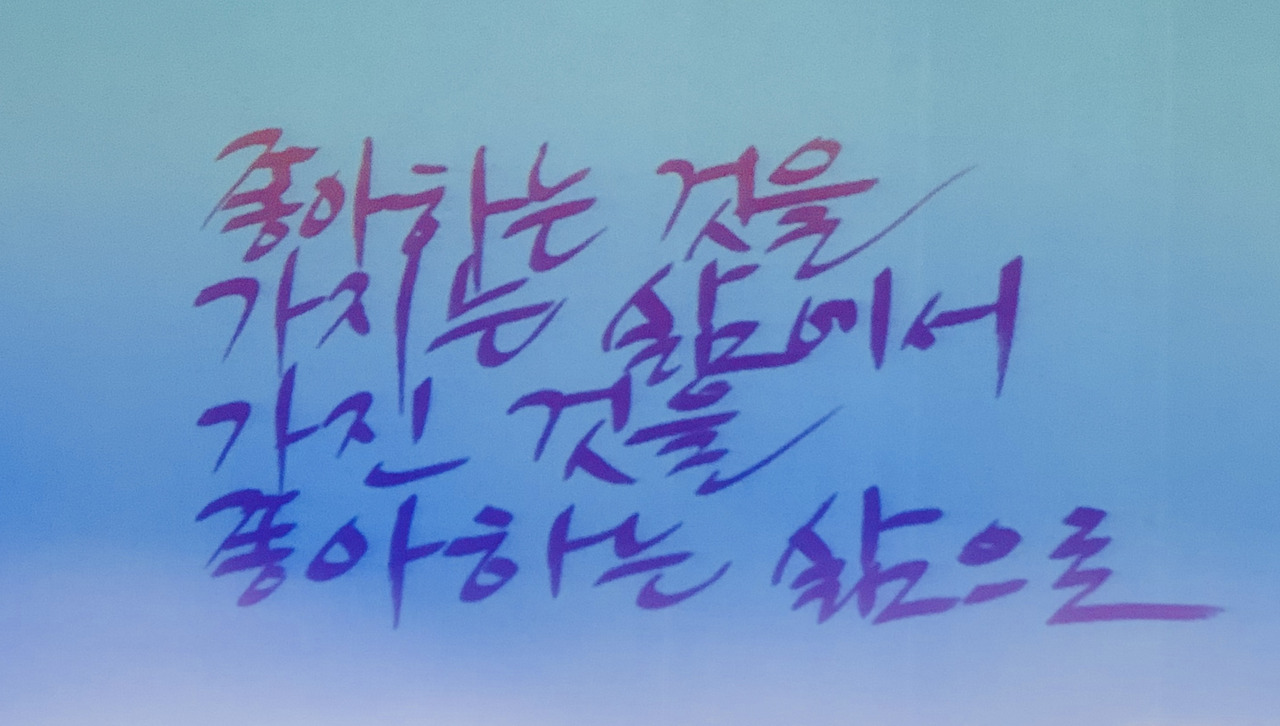 좋아하는 것을
가지는 삶에서
가진 것을
좋아하는 삶으로